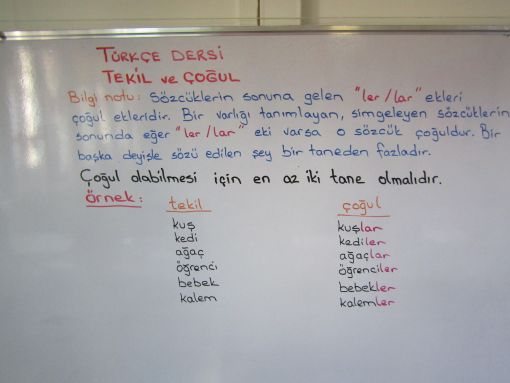 TÜRKÇE DERSİ
TEKİL ve ÇOĞUL
Bilgi notu: Sözcüklerin sonuna gelen "ler/lar" ekleri
çoğul ekleridir. Bir varlığı tanımlayan, simgeleyen sözcüklerin
sonunda eğer "ler/lar" eki varsa o sözcük çoğuldur. Bir
başka deyişle sözü edilen şey bir taneden fazladır.
Çoğul olabilmesi için en az iki tane olmalıdır.
Örnek: tekil çoğul
kuş kuşlar
kedi kediler
ağaç ağaçlar
öğrenci öğrenciler
bebek bebekler
kalem kalemler